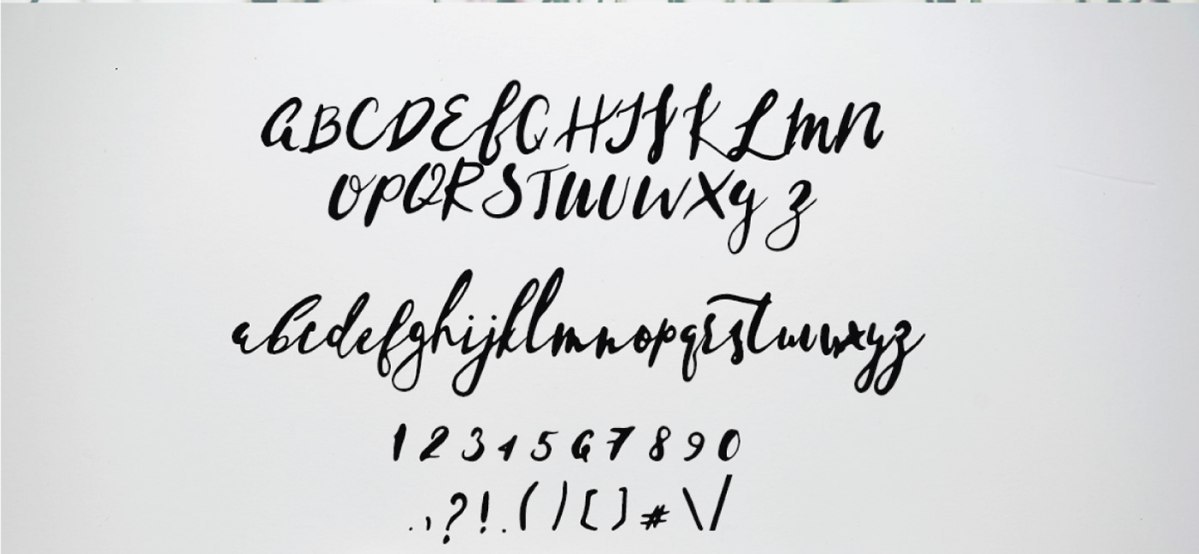 ABCDEFGHIJKLMN
OPQRSTUVWXYZ
abcdefghijklmnopqrstuvwxyz
1234567890
.,?!.()[]#\/